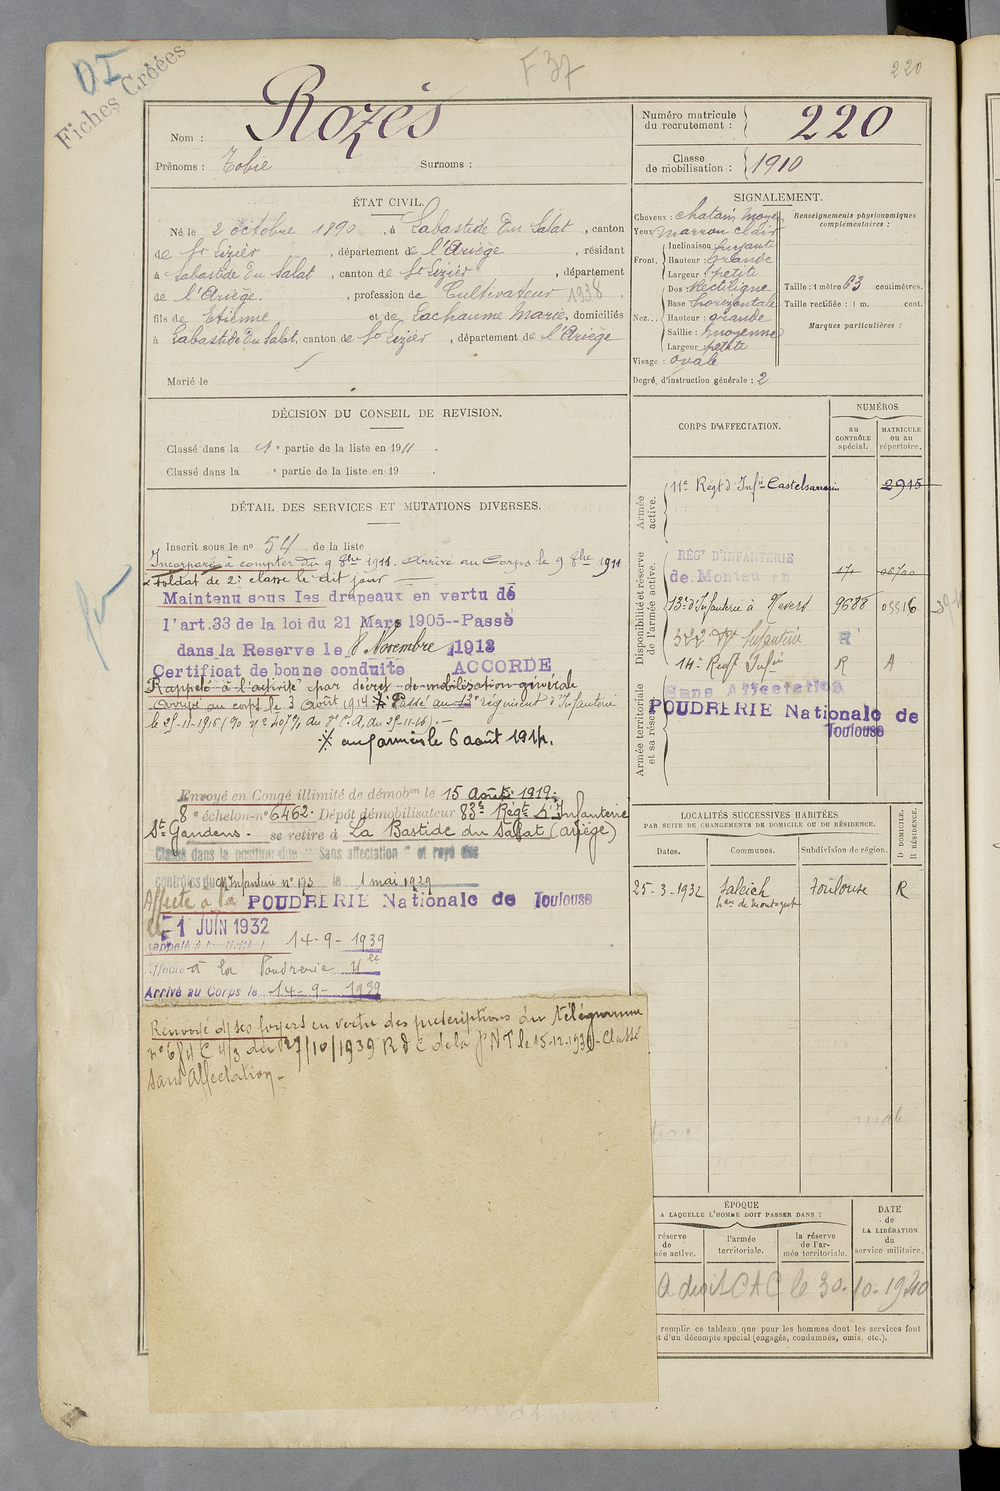 OI
Fiches Créées
F 37
220
Nom : Rozès
Prénoms : Tobie Surnoms :
Numéro matricule du recrutement : 220
Classe de mobilisation : 1910
ÉTAT CIVIL.
Né le 2 octobre 1890, à Labastide du Salat, canton
de St Lizier, département de l'Ariège, résidant
à Labastide du Salat, canton de St Lizier, département
de l'Ariège., profession de Cultivateur 1938,
fils de Etienne et de Lachaume Marie, domiciliés
à Labastide du Salat, canton de St Lizier, département de l'Ariège
Marié le
SIGNALEMENT.
Cheveux : chatain moyen
Yeux marron clair
Front. Inclinaison fuyant
Hauteur : grande
Largeur : petite
Nez... Dos Rectiligne
Base horizontale
Hauteur : grande
Saillie : moyenne
Largeur petite
Visage : ovale
Degré d'instruction générale : 2
Renseignements physionomiques complémentaires :
Taille : 1 mètre 63 centimètres.
Taille rectifiée : 1 m. cent.
Marques particulières :
DÉCISION DU CONSEIL DE REVISION.
Classé dans la 1e partie de la liste en 1911.
Classé dans la e partie de la liste en 19 .
DÉTAIL DES SERVICES ET MUTATIONS DIVERSES.
Inscrit sous le no 54 de la liste
Incorporé à compter du 9 8bre 1911. Arrivé au Corps le 9 8bre 1911
Soldat de 2e classe le dit jour
Maintenu sous les drapeaux en vertu de
l'art.33 de la loi du 21 Mars 1905--Passé
dans la Reserve le 8 Novembre 1913
Certificat de bonne conduite ACCORDE
Rappelé à l'activité par décret de mobilisation générale
Arrivé au corps le 3 Août 1914 Passé au 13e régiment d'Infanterie
le 25-11-1916
aux armées le 6 août 1914.
Envoyé en Congé illimité de démobon le 15 Août 1919.
8e échelon-no 6462. Dépôt démobilisateur 83e Régt d'Infanterie
St Gaudens. se retire à La Bastide du Salat (ariège)
Classé dans la position dite " Sans affectation " et rayé des
contrôles du Infanterie no 193 le 1 mai 1929
Affecté à la POUDRERIE Nationale de Toulouse
le 1 JUIN 1932
rappelé à l'activité le 14-9-1939
affecté à la Poudrerie Nle
Arrivé au Corps le 14-9-1939
Renvoyé ds ses foyers en vertu des prescriptions du télégramme
du 27/10/1939 R d C de la PNT le 15-12-1939- Classé
sans affectation-
CORPS D'AFFECTATION.
NUMÉROS
au CONTRÔLE spécial.
MATRICULE ou au répertoire.
Armée active.
11e Régt d'Infie Castelsarrasin 2915
Disponibilité et réserve de l'armée active.
RÉGt D'INFANTERIE
de Montauban 171
13e d'Infanterie à Nevers 9688 05516
322e Rgt Infanterie R
14e Regt Infie R A
Armée territoriale et sa réserve
Sans Affectation
POUDRERIE Nationale de
Toulouse
LOCALITÉS SUCCESSIVES HABITÉES
PAR SUITE DE CHANGEMENTS DE DOMICILE OU DE RÉSIDENCE.
Dates. Communes. Subdivision de région. D DOMICILE. R RÉSIDENCE.
25-3-1932 Saleich Toulouse R
ÉPOQUE
A LAQUELLE L'HOMME DOIT PASSER DANS :
réserve de née active.
l'armée territoriale.
la réserve de l'armée territoriale.
DATE de LA LIBÉRATION du service militaire.
A droit CAC le 30-10-1940
remplir ce tableau que pour les hommes dont les services font
t d'un décompte spécial (engagés, condamnés, omis, etc.).